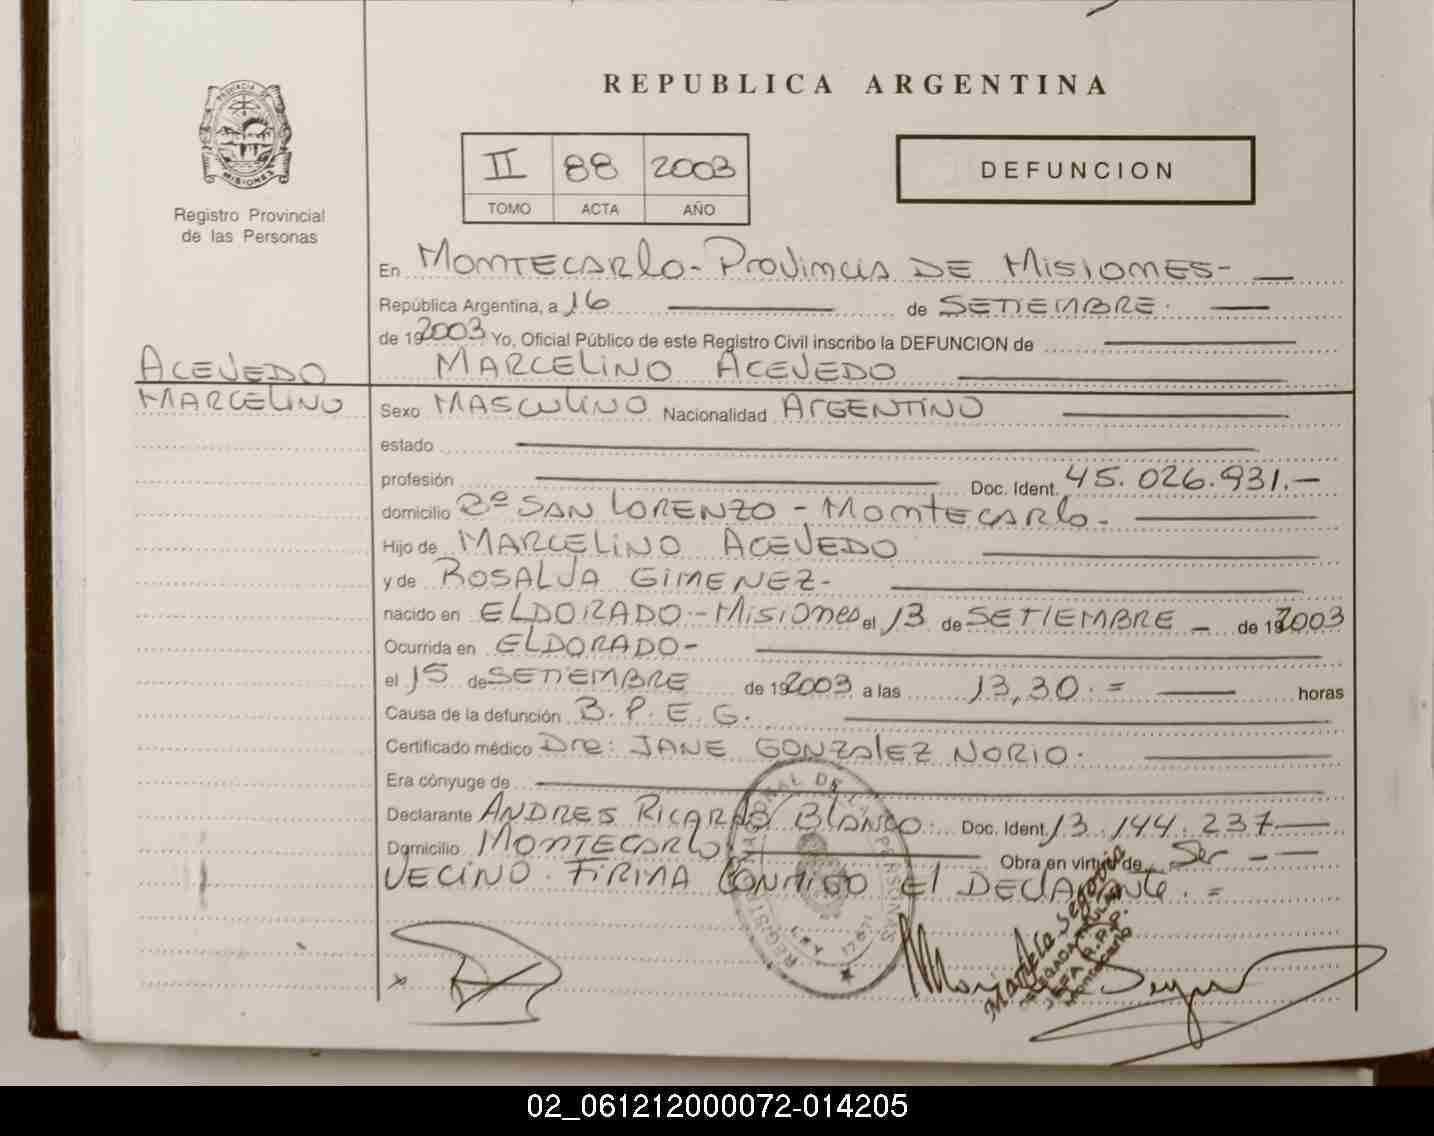 REPUBLICA ARGENTINA
PROVINCIA DE
MISIONES
Registro Provincial
de las Personas
II 88 2003
TOMO ACTA AÑO
DEFUNCION
En MONTECARLO - PROVINCIA DE MISIONES -
República Argentina, a 16 de SETIEMBRE.
de 192003 Yo, Oficial Público de este Registro Civil inscribo la DEFUNCION de
MARCELINO ACEVEDO
ACEVEDO
MARCELINO
Sexo MASCULINO Nacionalidad ARGENTINO
estado
profesión Doc. Ident. 45.026.931.-
domicilio Bº SAN LORENZO - MONTECARLO.
Hijo de MARCELINO ACEVEDO
y de ROSALIA GIMENEZ-
nacido en ELDORADO - MISIONES el 13 de SETIEMBRE - de 192003
Ocurrida en ELDORADO-
el 15 de SETIEMBRE de 192003 a las 13,30.= horas
Causa de la defunción B.P.E.G.
Certificado médico Dra: JANE GONZALEZ NORIO.
Era cónyuge de
Declarante ANDRES RICARDO BLANCO. Doc. Ident. 13.144.237
Domicilio MONTECARLO Obra en virtud de Ser
VECINO. FIRMA CONMIGO El DECLARANTE.=
Montecarlo
02_061212000072-014205